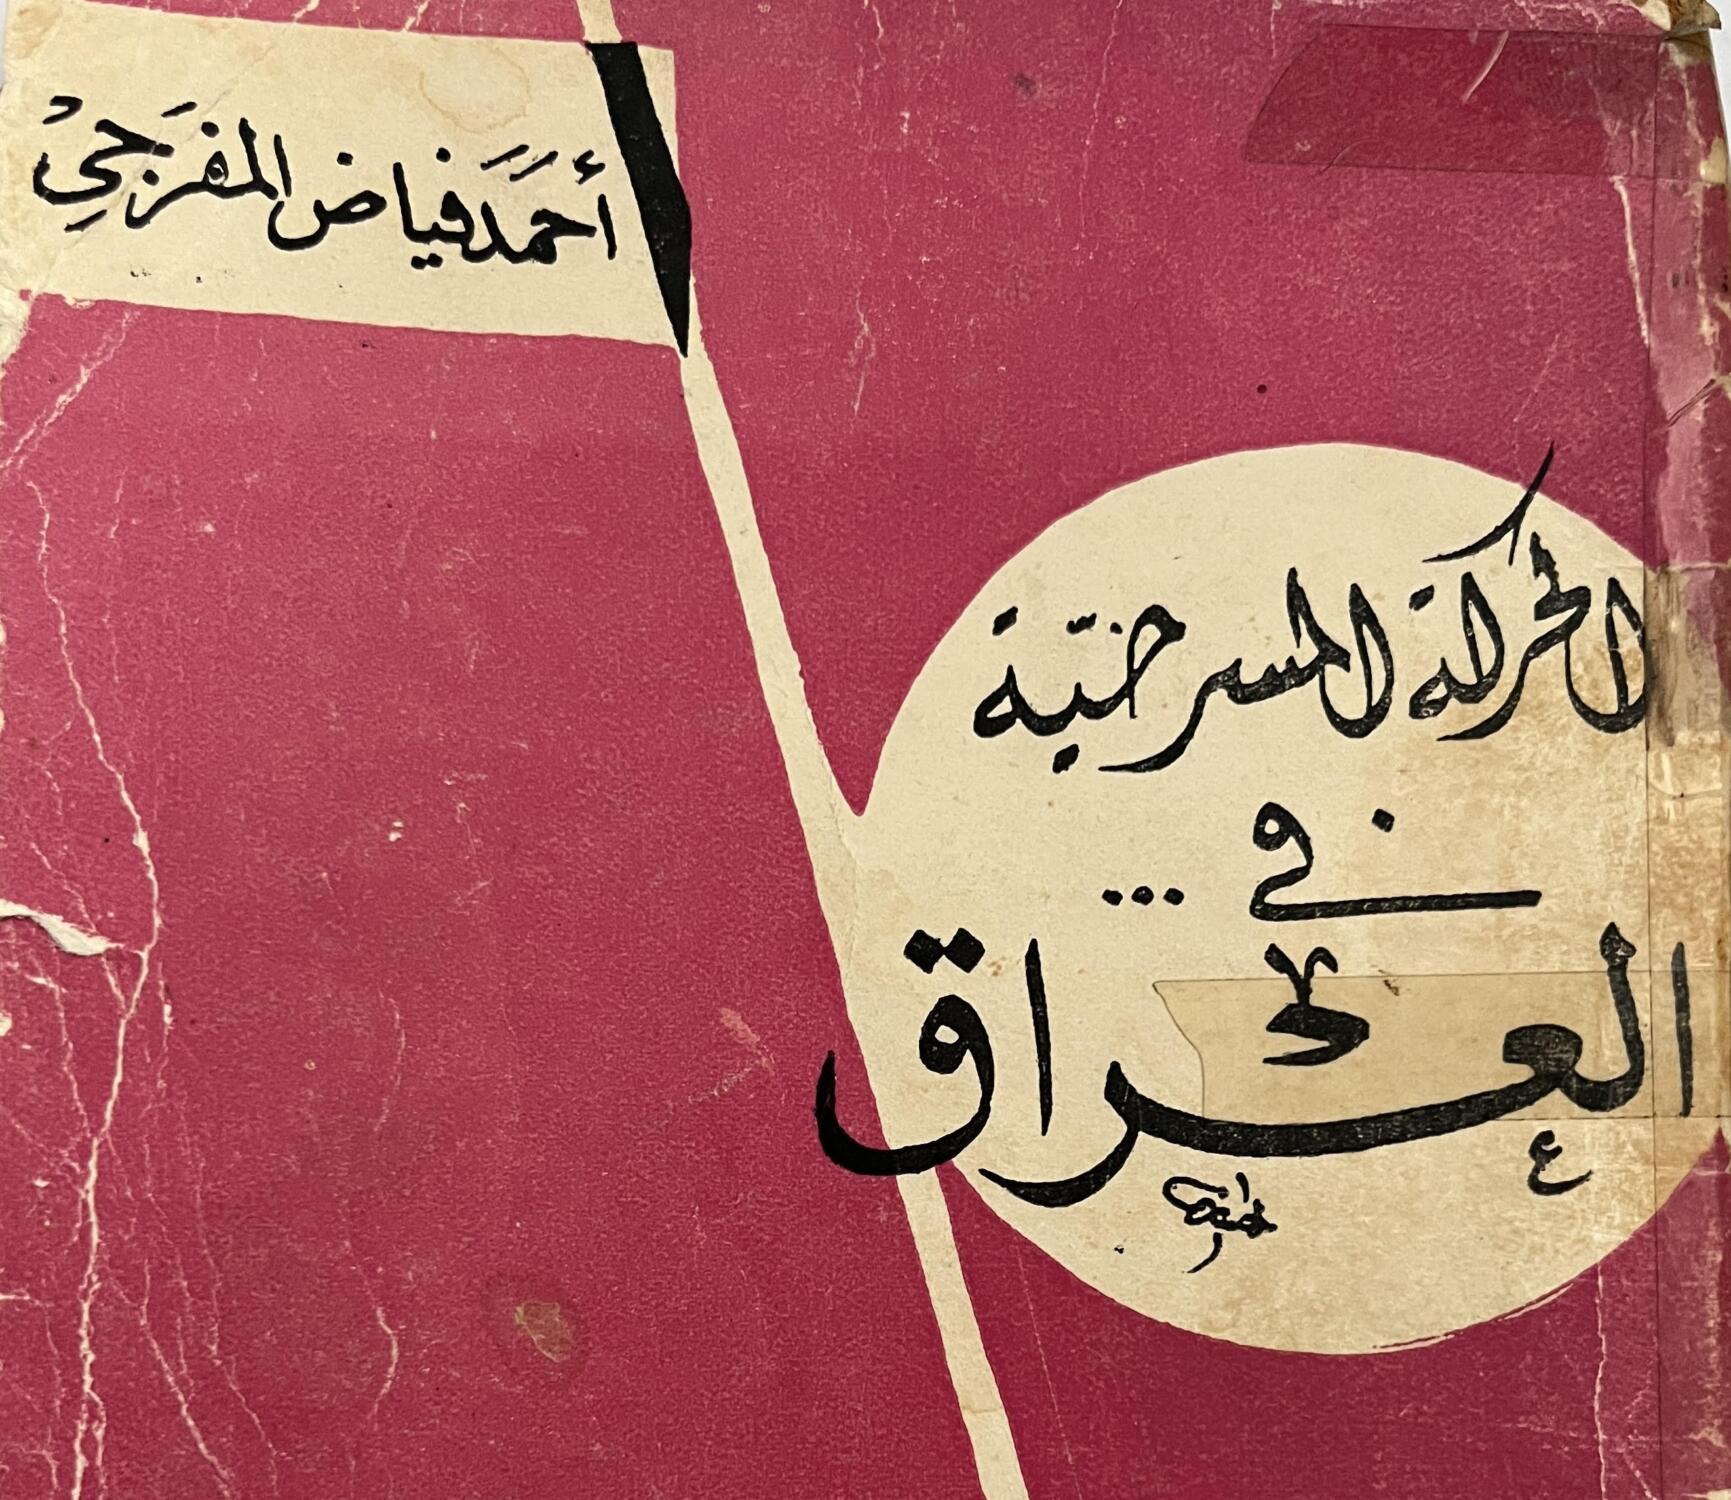 أحمَد فياض المفرَجيْ
الحركة المسرحيّة
في ...
العراق